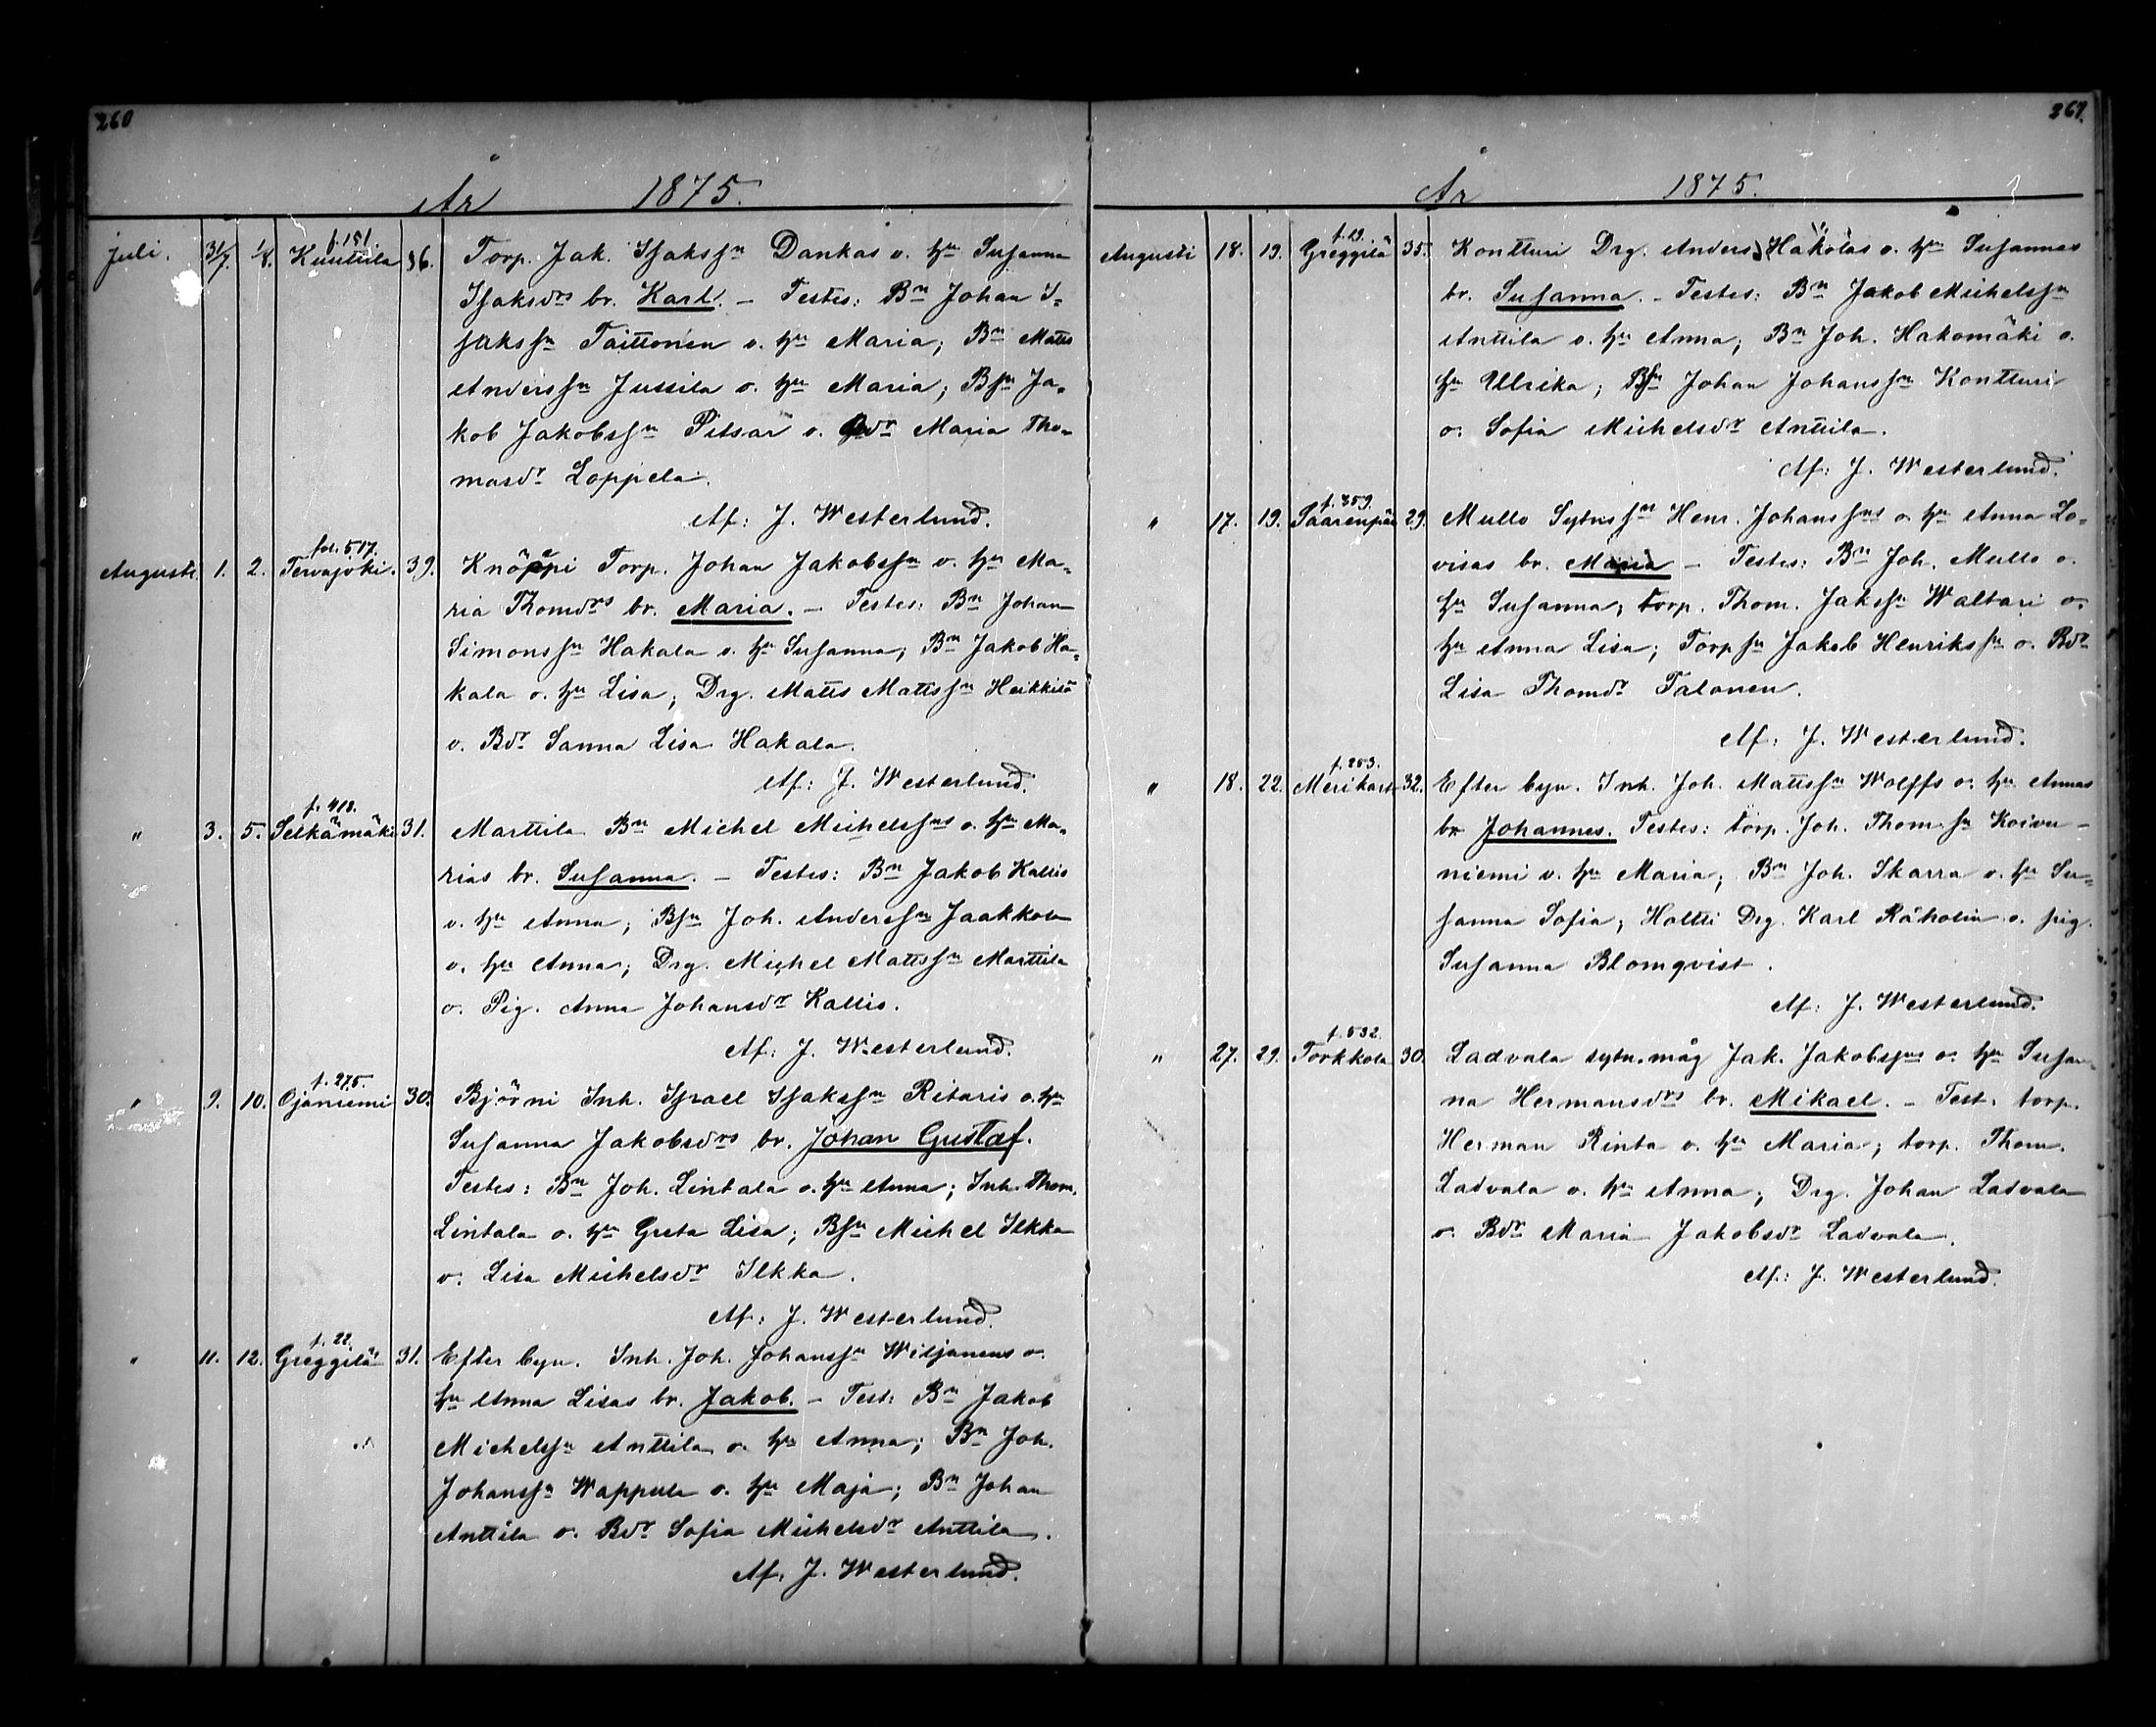 260
År 1875.
f. 191.
Juli. 31/7. 1/8. Kuuttila 36. Torp. Jak. Isakssn Dankas o. hu Susanna
Isaksdrs br. Karl. – Testes: Bn Johan I=
sakssn Taittonen o. hu Maria; Bn Matts
Anderssn Jussila o. hu Maria; Bsn Ja=
kob Jakobssn Pitsar o. Bdr Maria Tho=
masdr Loppela.
Af: J. Westerlund.
fol. 517.
Augusti. 1. 2. Tervajoki. 39. Knöppi Torp. Johan Jakobssn o. hu Ma=
ria Thomdrs br. Maria. – Testes: Bn Johan
Simonssn Hakala o. hu Susanna; Bn Jakob Ha=
kala o. hu Lisa; Drg. Matts Mattssn Heikkilä
o. Bdr Sanna Lisa Hakala.
Af: J. Westerlund.
f. 412.
" 3. 5. Selkämäki 31. Marttila Bn Michel Michelssns o. hu Ma=
rias br. Susanna. – Testes: Bn Jakob Kallis
o. hu Anna; Bsn Joh. Anderssn Jaakkola
o. hu Anna; Drg. Michel Mattssn Marttila
o. Pig. Anna Johansdr Kallis.
Af: J. Westerlund.
f. 275.
" 9. 10. Ojaniemi 30. Björni Inh. Israel Isakssn Ritaris o. hu
Susanna Jakobsdrs br. Johan Gustaf.
Testes: Bn Joh. Lintala o. hu Anna; Inh. Thom.
Lintala o. hu Greta Lisa; Bsn Michel Ilkka
o. Lisa Michelsdr Ilkka.
Af: J. Westerlund.
f. 22.
" 11. 12. Greggilä 31. Efter byn. Inh. Joh. Johanssn Wiljanens o.
hu Anna Lisas br. Jakob. – Test: Bn Jakob
Michelssn Anttila o. hu Anna; Bn Joh.
Johanssn Wappula o. hu Maja; Bn Johan
Anttila o. Bdr Sofia Michelsdr Anttila.
Af: J. Westerlund.
261.
År 1875.
f. 19.
Augusti 18. 19. Greggilä 35. Kontturi Drg. Anders Hakolas o. hu Susannas
br. Susanna. – Testes: Bn Jakob Michelssn
Anttila o. hu Anna; Bn Joh. Hakomäki o.
hu Ullrika; Bsn Johan Johanssn Kontturi
o. Sofia Michelsdr Anttila.
Af: J. Westerlund.
f. 359.
" 17. 19. Saarenpää 29. Mullo Sytnssn Henr. Johanssns o. hu Anna Lo=
visas br. Maria – Testes: Bn Joh. Mullo o.
hu Susanna; torp. Thom. Jakssn Waltari o.
hu Anna Lisa; Torpsn Jakob Henrikssn o. Bdr
Lisa Thomdr Talonen.
Af: J. Westerlund.
f. 253.
" 18. 22. Merikart 32. Efter byn. Inh. Joh. Mattssn Wolffs o. hu Annas
br Johannes. Testes: torp. Joh. Thomssn Koivu-
niemi o. hu Maria; Bn Joh. Skarra o. hu Su=
sanna Sofia; Holtti Drg. Karl Råholin o. pig.
Susanna Blomqvist.
Af: J. Westerlund.
f. 532.
" 27. 29. Torkkola 30. Ladvala sytn.måg Jak. Jakobssns o. hu Susan=
na Hermansdrs br. Mikael. – Test. torp.
Herman Rinta o. hu Maria; torp. Thom.
Ladvala o. hu Anna; Drg. Johan Ladvala
o. Bdr Maria Jakobsdr Ladvala.
Af: J. Westerlund.